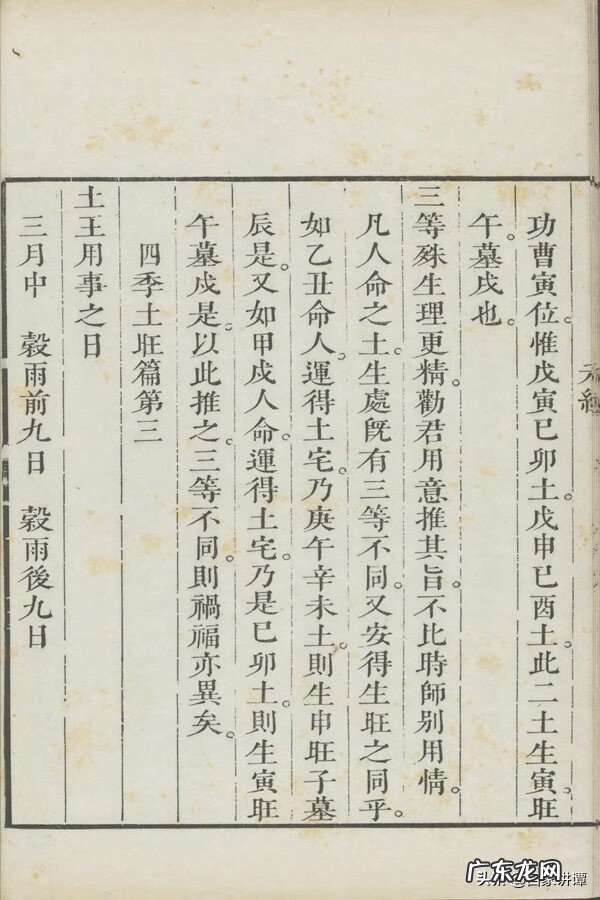 元經
功曹寅位。惟戊寅已卯土。戊申已酉土。此二土生寅。旺
午。墓戌也。
三等殊生理更精。勸君用意推其旨。不比時師別用情。
凡人命之土。生處旣有三等不同。又安得生旺之同乎。
如乙丑命人。運得土宅。乃庚午辛未土。則生申旺子墓
辰是。又如甲戌人命。運得土宅。乃是已卯土。則生寅旺
午墓戌是。以此推之。三等不同。則禍福亦異矣。
四季土旺篇第三
土王用事之日
三月中 穀雨前九日 穀雨後九日
广东龙网